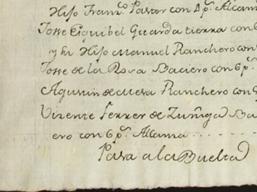 Hijo Franco. Pasar con 4 ps. Alcam
Jose Esquibel Guarda tierra con
y su Hijo Manuel Ranchero con
Jose de la Rosa Baciero con 6 ps.
Agustin de Mesa Ranchero con
Vizente Ferrer de Zuñiga Ba
ero con 6 ps. Altama
Pasa a la Buelta